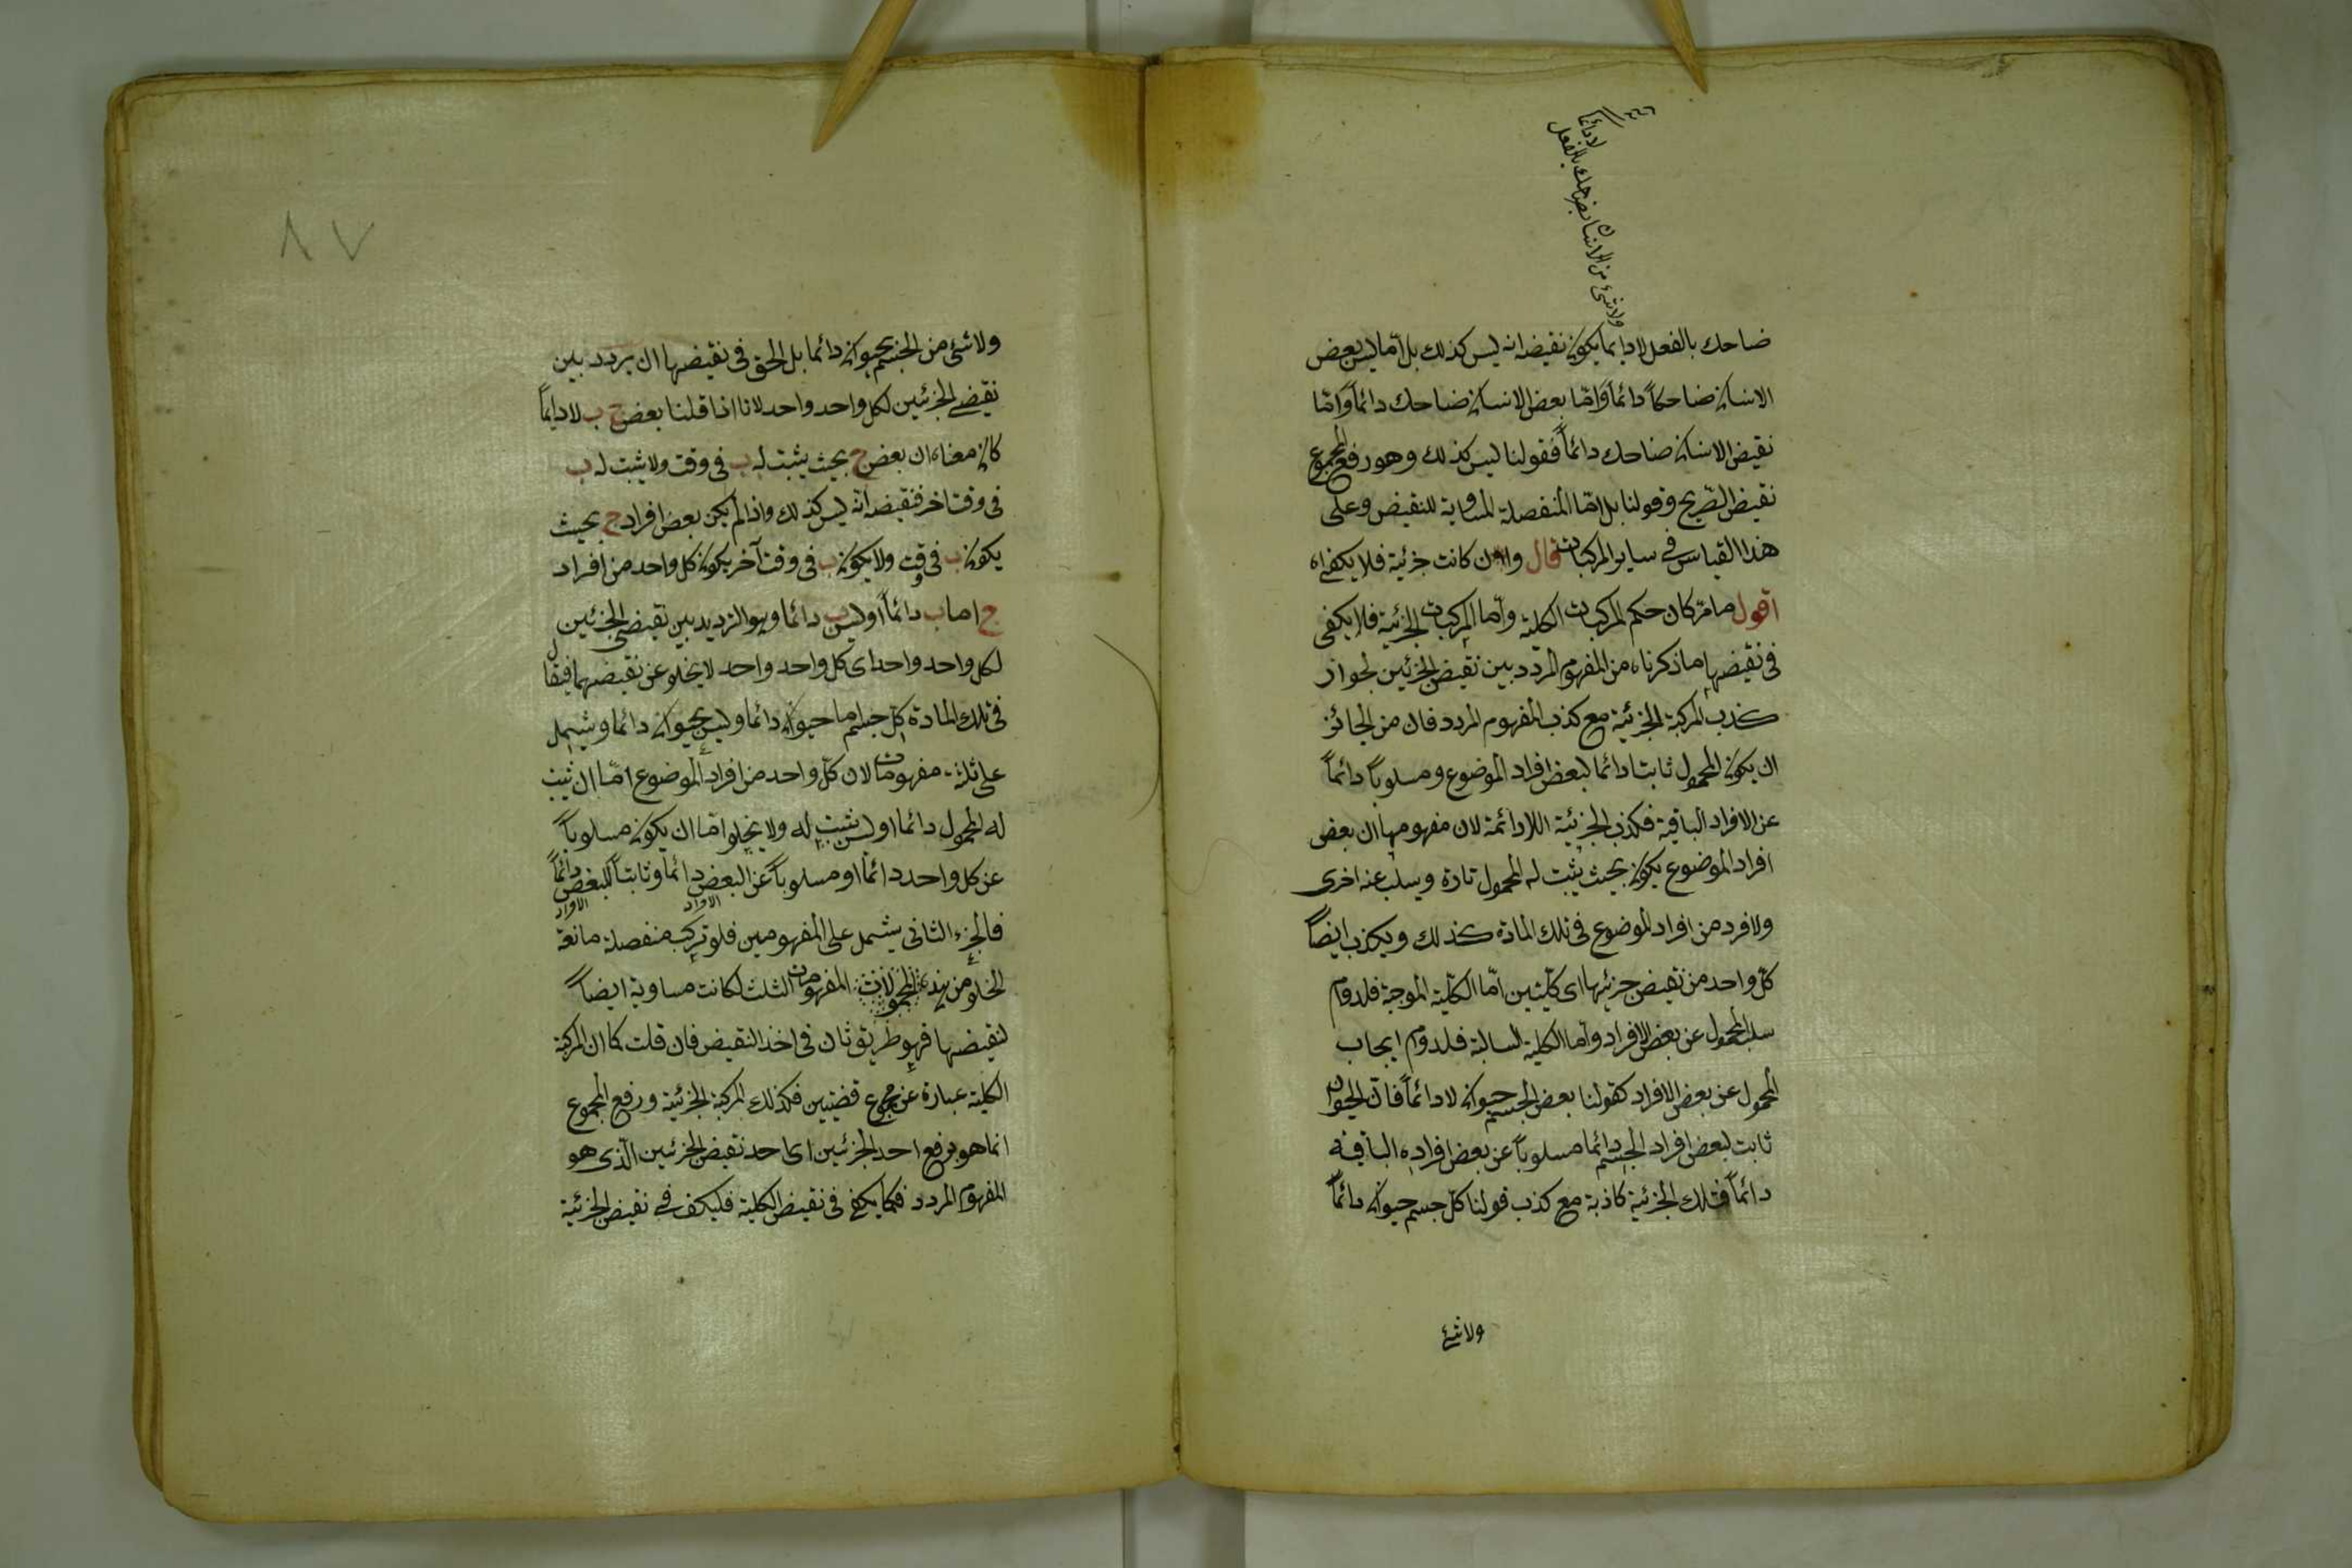 لا دائما
ولا شئ من الانسان بضاحك بالفعل
ضاحك بالفعل لا دايما يكون نقيضه انه ليس كذلك بل اما ليس بعض
الانسان ضاحكاً دائماً وامّا بعض الانسان ضاحك دائماً وامّا
نقيض الانسان ضاحك دائماً فقولنا ليس كذلك وهو رفع المجموع
نقيض الصّريح وقولنا بل امّا المنفصلة المساوية للنقيض وعلى
هذا القياس في ساير المركبات قال وان كانت جزئية فلا يكفى اه
اقول ما مرّ كان حكم المركبات الكلية وامّا المركبات الجزئية فلا يكفى
فى نقيضها ما ذكرناه من المفهوم المردد بين نقيض الجزئين لجواز
كذب المركبة الجزئية مع كذب المفهوم المردد فان من الجائز
ان يكون المحمول ثابتا دائما لبعض افراد الموضوع ومسلوباً دائماً
عن الافراد الباقية فكذب الجزئية اللادائمة لان مفهومها ان بعض
افراد الموضوع يكون بحيث يثبت له المحمول تارة ويسلب عنه اخرى
ولا فرد من افراد الموضوع فى تلك المادة كذلك ويكذب ايضاً
كل واحد من نقيض جزئيها اى كليتين امّا الكلية الموجبة فلدوام
سلب المحمول عن بعض الافراد وامّا الكلية السالبة فلدوام ايجاب
المحمول عن بعض الافراد كقولنا بعض الجسم حيوان لا دائماً فانّ الحيوان
ثابت لبعض افراد الجسم دائما مسلوباً عن بعض افراده الباقيه
دائماً فتلك الجزئية كاذبة مع كذب قولنا كل جسم حيوان دائماً
ولا شئ
٨٧
ولا شئ من الجسم بحيوان دائما بل الحق فى نقيضها ان يردد بين
نقيضى الجزئين لكل واحد واحد لانا اذا قلنا بعض ج ب لا دايماً
كان معناه ان بعض ج بحيث يثبت له ب فى وقت ولا يثبت له ب
فى وقت اخر فنقيضه انه ليس كذلك واذا لم يكن بعض افراد ج بحيث
يكون ب فى وقت ولا يكون ب فى وقت آخر يكون كل واحد من افراد
ج اما ب دائماً او ليس ب دائما وهو الترديد بين نقيضى الجزئين
لكل واحد واحد اى كل واحد واحد لا يخلو عن نقيضهما فيقال
فى تلك المادة كل جسم اما حيوان دائما او ليس بحيوان دائما ويشتمل
على ثلثة مفهومات لان كل واحد من افراد الموضوع امّا ان يثبت
له المحمول دائما او ليس يثبت له ولا يخلوا امّا ان يكون مسلوباً
عن كل واحد دائماً او مسلوباً عن البعض دائما وثابتاً للبعض دائماً
الافراد الافراد
فالجزء الثانى يشتمل على المفهومين فلو تركب منفصلة مانعة
الخلو من هذه المحمولات المفهومات الثلث لكانت مساوية ايضاً
لنقيضها فهو طريق ثان فى اخذ النقيض فان قلت كما ان المركبة
الكلية عبارة عن مجموع قضيتين فكذلك المركبة الجزئية ورفع المجموع
انما هو برفع احد الجزئين اى احد نقيض الجزئين الّذى هو
المفهوم المردد فكما يكفى فى نقيض الكلية فليكف فى نقيض الجزئية